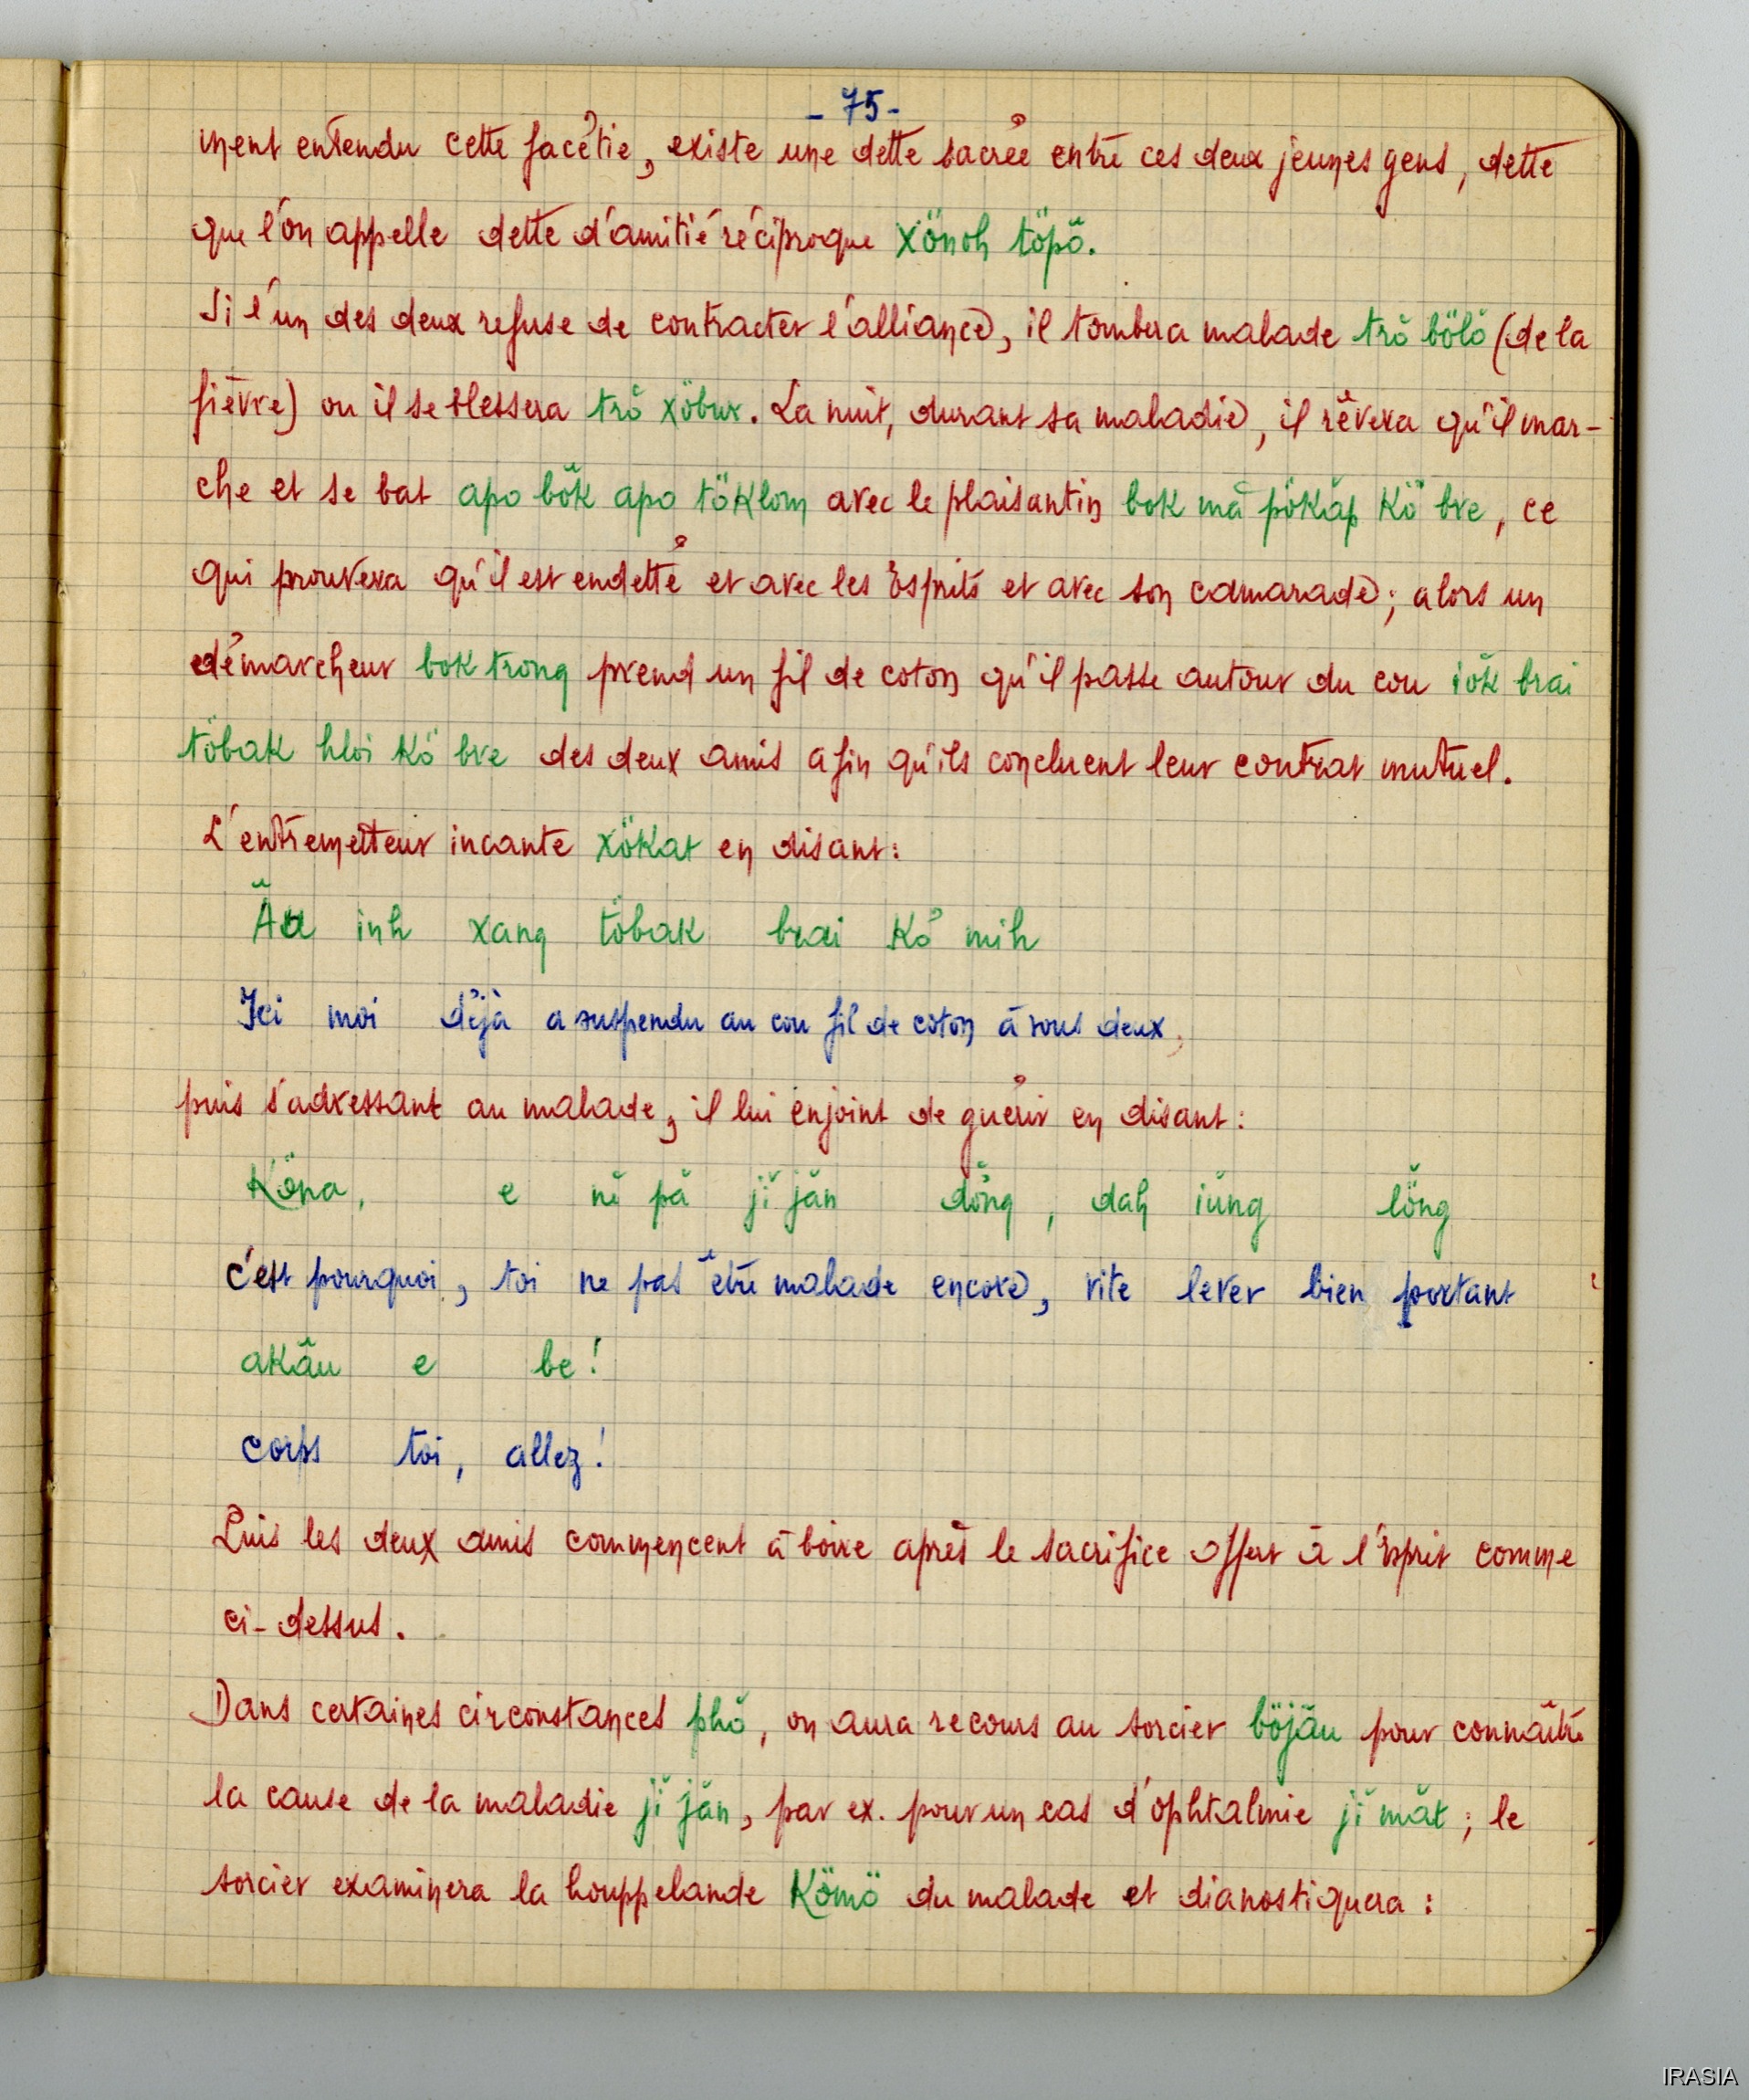 - 75 -
ment entendu cette facétie, existe une dette sacrée entre ces deux jeunes gens, dette
que l'on appelle dette d'amitié réciproque xönoh töpŏ.
Si l'un des deux refuse de contracter l'alliance, il tombera malade trŏ bölŏ (de la
fièvre) ou il se blessera trŏ xöbur. La nuit, durant sa maladie, il rêvera qu'il mar-
che et se bat apo bŏk apo töklom avec le plaisantin bok mă pökăp kö bre, ce
qui prouvera qu'il est endetté et avec les Esprits et avec son camarade; alors un
démarcheur bok trong prend un fil de coton qu'il passe autour du cou iŏk brai
töbak hloi kö bre des deux amis afin qu'ils concluent leur contrat mutuel.
L'entremetteur incante xökat en disant:
Ău inh xang töbak brai kö mih
Ici moi déjà a suspendu au cou fil de coton à vous deux,
puis s'adressant au malade, il lui enjoint de guérir en disant:
Köna, e nĕ pă jĭ jăn dŏng, dah iŭng lŏng
c'est pourquoi, toi ne pas être malade encore, vite lever bien portant
akău e be!
corps toi, allez!
Puis les deux amis commencent à boire après le sacrifice offert à l'Esprit comme
ci-dessus.
Dans certaines circonstances phŏ, on aura recours au sorcier böjău pour connaître
la cause de la maladie jĭ jăn, par ex. pour un cas d'ophtalmie jĭ măt; le
sorcier examinera la houppelande kömö du malade et dianostiquera :
IRASIA